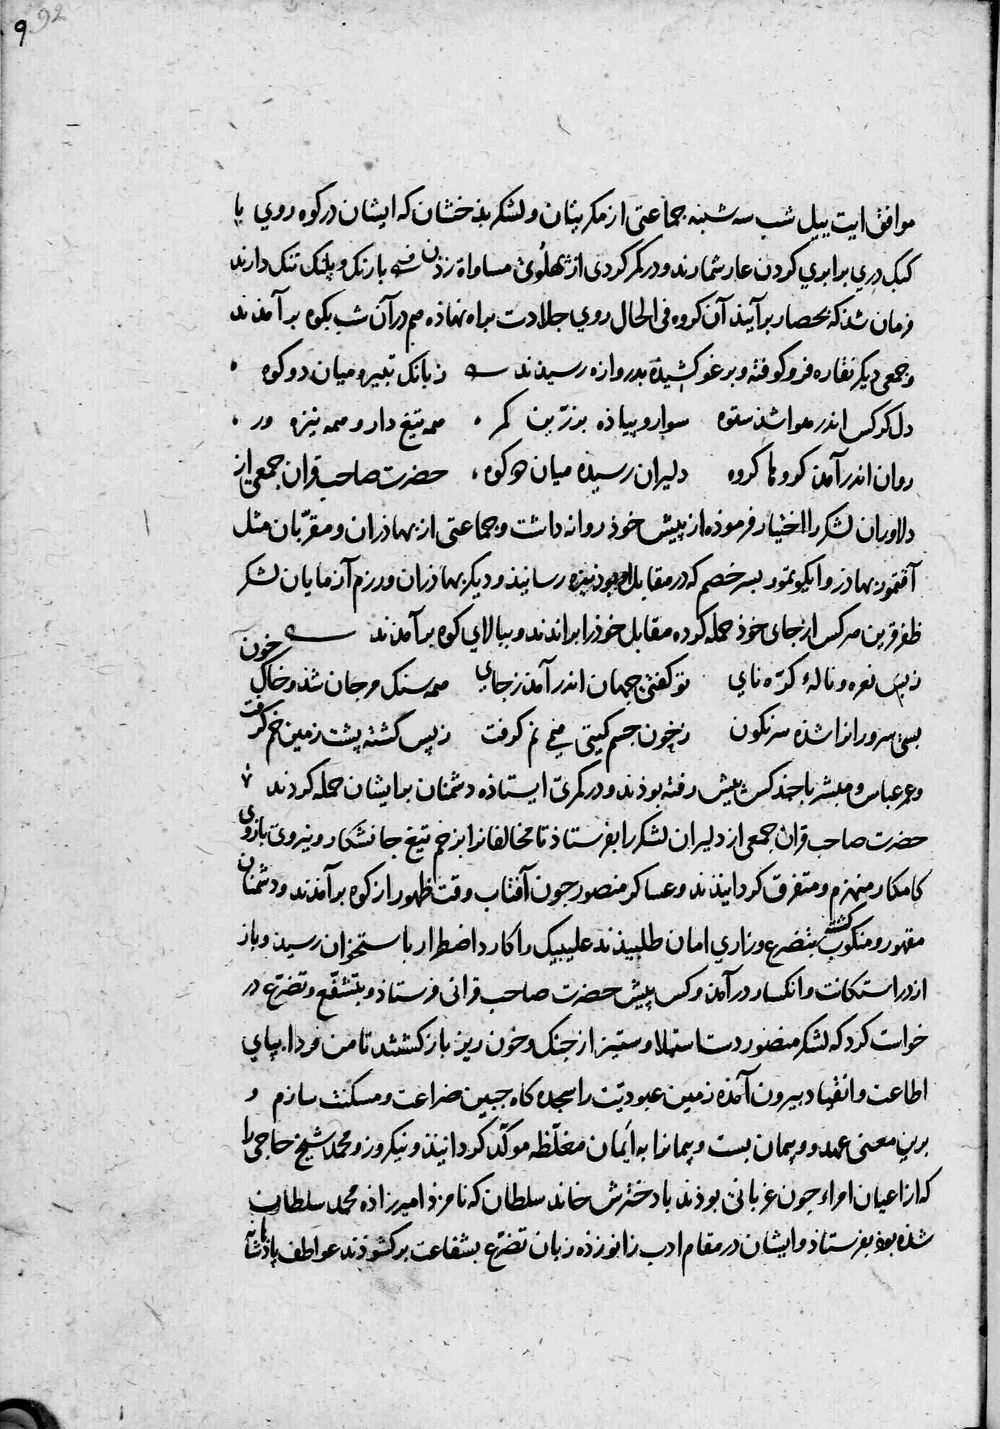 92
9
موافق ایت ییل شب سه شنبه جماعتی از مکریتان و لشکر بدخشان که ایشان در کوه روی با
کبک دری برابری کردن عار شمارند و در کمر گردی از پهلوی مساواة زدن با رنک و پلنک ننک دارند
فرمان شذ که بحصار برآیند آن کروه فی الحال روی جلادت براه نهاذه هم در آن شب بکوه برآمذند
و جمعی دیکر نقاره فرو کوفته و برغو کشیذه بدروازه رسیذند ز بانک تبیره میان دو کوه
دل کرکس اندر هوا شذ ستوه سوار و پیاذه بزرین کمر همه تیغ دار و همه نیزه ور
روان اندر آمذ کروها کروه دلیران رسیذه میان دو کوه حضرت صاحب قران جمعی از
دلاوران لشکر را اختیار فرموذه از پیش خوذ روانه داشت و جماعتی از بهاذران و مقربان مثل
آقتمور بهاذر و ایکوتمور بسر خصم که در مقابل او بوذ نیزه رسانیذ و دیکر بهاذران و رزم آزمایان لشکر
ظفر قرین هر کس از جای خوذ حمله کرده مقابل خوذ را براندند و ببالای کوه برآمدند
ز بس نعره و نالهٔ کرّه نای تو کفتی جهان اندر آمذ ز جای همه سنک مرجان شذ و خاک خون
بسی سروران را شذه سرنکون ز خون جسم کیتی نم کرفت ز بس کشته پشت زمین خم کرفت
و عمر عباس و مبشر با چند کس پیش رفته بوذند و در کمری ایستاذه دشمنان بر ایشان حمله کردند
حضرت صاحب قران جمعی از دلیران لشکر را بفرستاذ تا مخالفانرا بزخم تیغ جانشکار و نیروی بازوی
کامکار منهزم و متفرق کردانیذند و عساکر منصور جون آفتاب وقت ظهور از کوه برآمذند و دشمنان
مقهور و منکوب کشته بتضرع و زاری امان طلبیذند علی بیک را کارد اضطرار باستخوان رسیذ و باز
از در استکانت و انکسار در آمذ و کس پیش حضرت صاحب قرانی فرستاذ و بتشفّع و تضرّع در
خواست کرد که لشکر منصور دست استیلا و ستیز از جنک و خون ریز باز کشند تا من فردا بپای
اطاعت و انقیاد بیرون آمذه زمین عبودیّت را سجده کاه جبین ضراعت و مسکنت سازم و
برین معنی عهد و پیمان بست و پیمانرا به اَیمان مغلّظه موکّد کردانیذ و نیکروز و محمد شیخ حاجی را
که از اعیان امراء جون غربانی بوذند با دخترش خاند سلطان که نامزد امیرزاذه محمد سلطان
شذه بوذ بفرستاذ و ایشان در مقام ادب زانو زذه زبان تضرّع بشفاعت برکشوذند عواطف پاذشاهانه